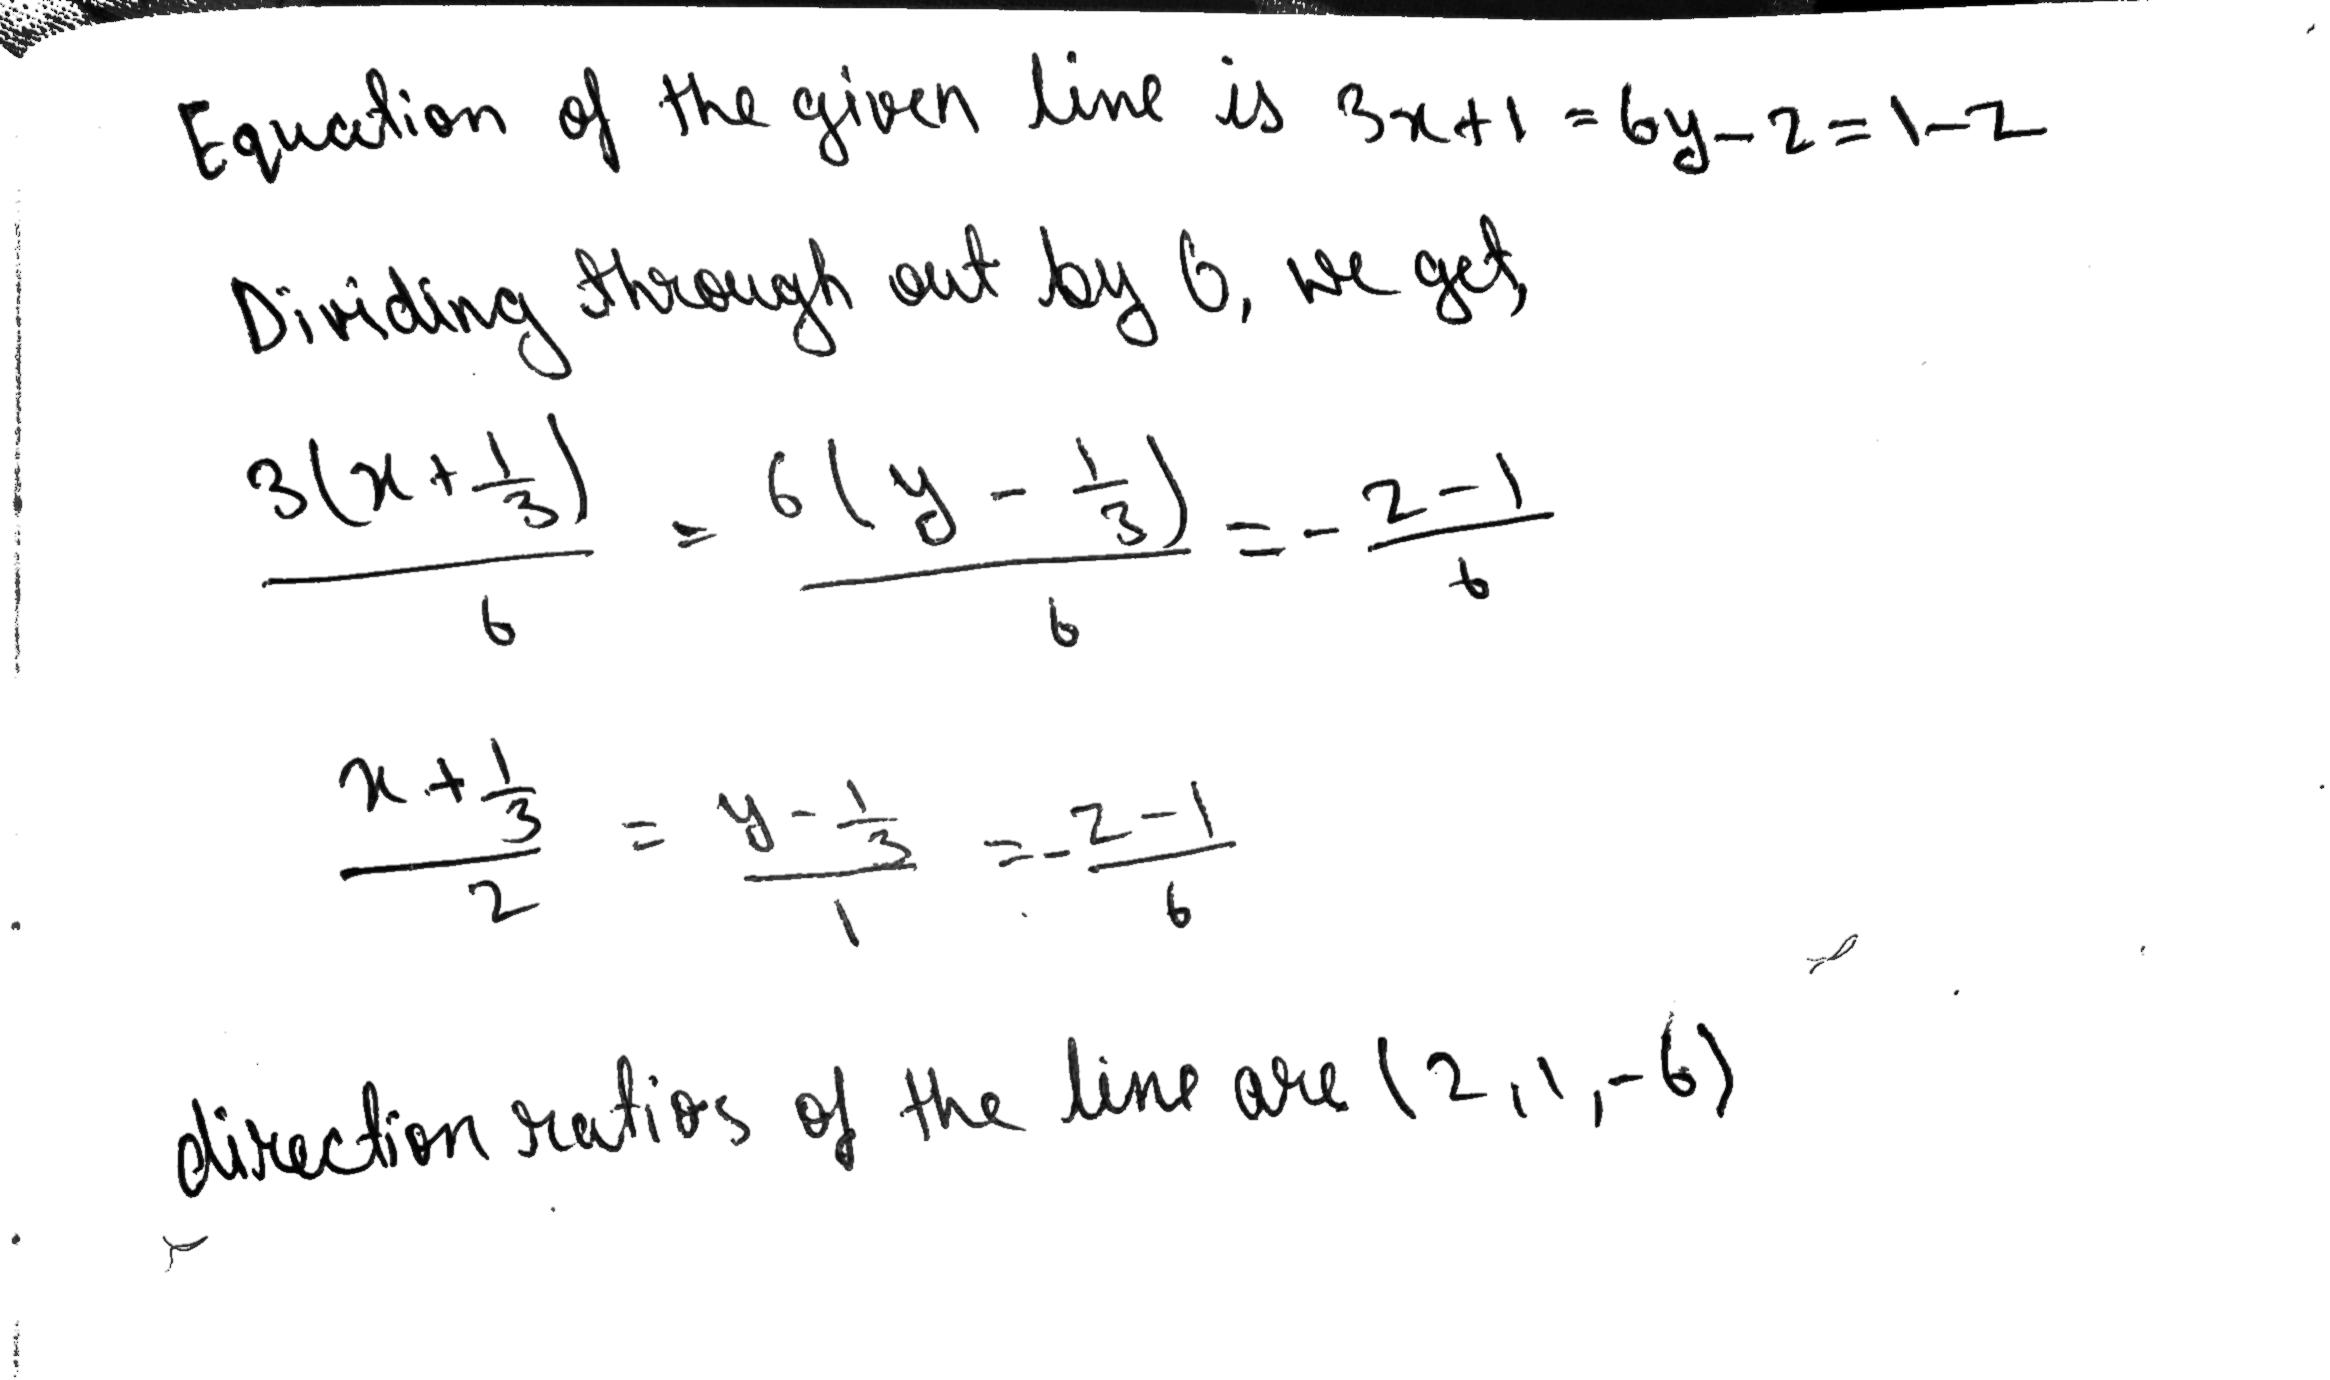 Equation of the given line is 3x+1 = 6y-2 = 1-z
Dividing through out by 6, we get,
3(x+1/3)/6 = 6(y-1/3)/6 = -z-1/6
x+1/3/2 = y-1/3/1 = -z-1/6
direction ratios of the line are (2,1,-6)